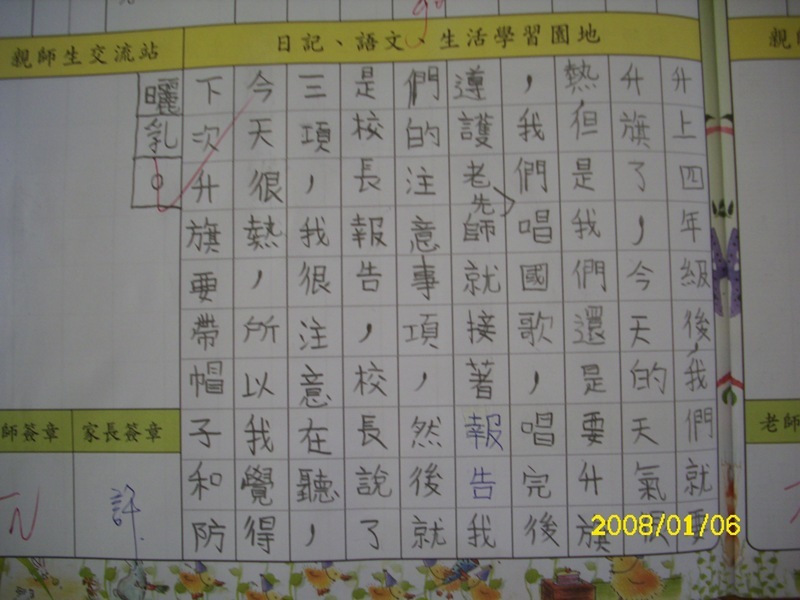 親師生交流站
日記、語文、生活學習園地
親
升上四年級後，我們就要
升旗了，今天的天氣很
熱，但是我們還是要升旗
，我們唱國歌，唱完後
導護老師先就接著報告我
們的注意事項，然後就
是校長報告，校長說了
三項，我很注意在聽，
今天很熱，所以我覺得，
下次升旗要帶帽子和防
曬乳。
師簽章
家長簽章
許
老師
2008/01/06